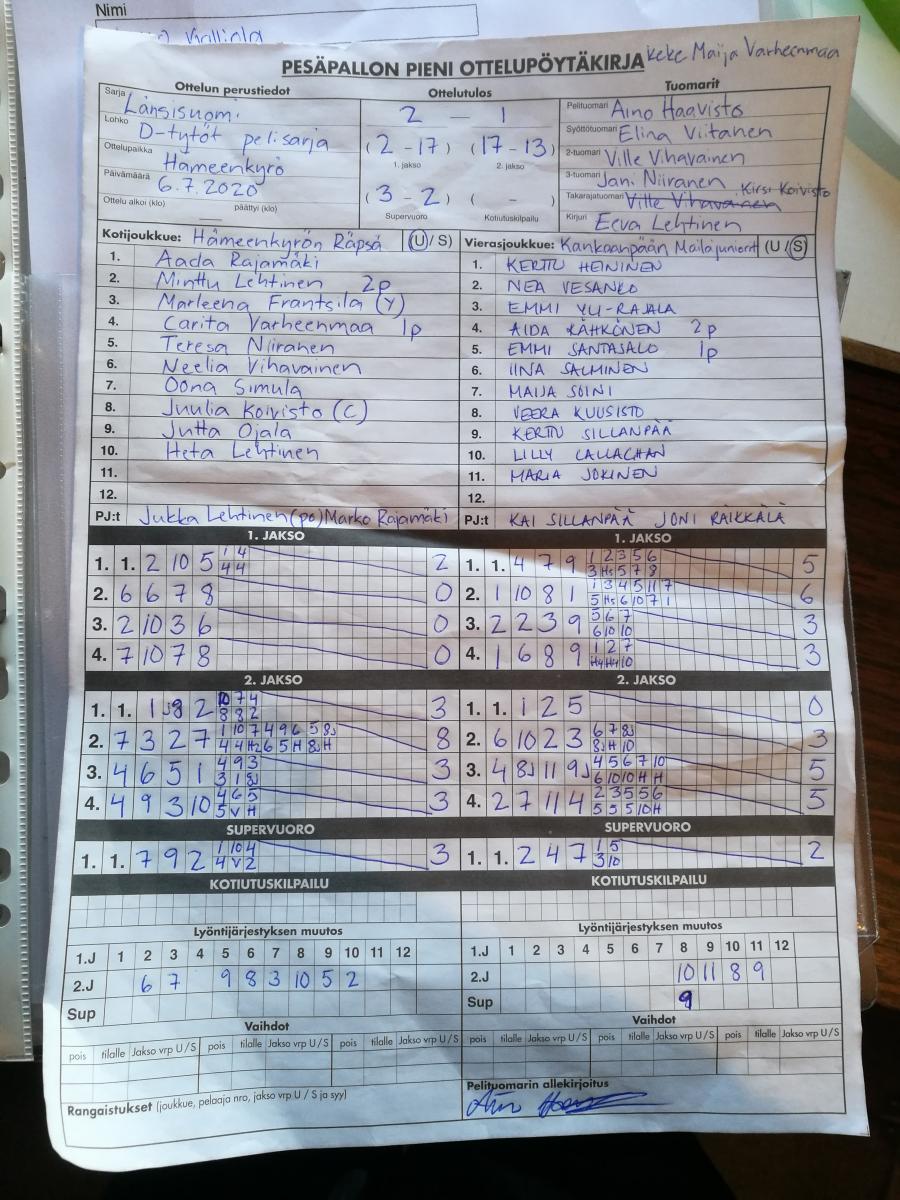 Nimi
PESÄPALLON PIENI OTTELUPÖYTÄKIRJA Keke Maija Varheenmaa
Ottelun perustiedot
Sarja Länsisuomi
Lohko D-tytöt pelisarja
Ottelupaikka Hämeenkyrö
Päivämäärä 6.7.2020
Ottelu alkoi (klo) päättyi (klo)
Ottelutulos
2 — 1
(2-17) (17-13)
1. jakso 2. jakso
(3-2) ( - )
Supervuoro Kotiutuskilpailu
Tuomarit
Pelituomari Aino Haavisto
Syöttötuomari Elina Viitanen
2-tuomari Ville Vihavainen
3-tuomari Jani Niiranen
Takarajatuomari Ville Vihavainen Kirsi Koivisto
Kirjuri Eeva Lehtinen
Kotijoukkue: Hämeenkyrön Räpsä (U/S)
1. Aada Rajamäki
2. Minttu Lehtinen 2p
3. Marleena Frantsila (Y)
4. Carita Varheenmaa 1p
5. Teresa Niiranen
6. Neelia Vihavainen
7. Oona Simula
8. Juulia Koivisto (C)
9. Jutta Ojala
10. Heta Lehtinen
11.
12.
PJ:t Jukka Lehtinen (po) Marko Rajamäki
Vierasjoukkue: Kankaanpään Mailajuniorit (U/S)
1. KERTTU HEININEN
2. NEA VESANKO
3. EMMI YLI-RAJALA
4. AIDA KÄHKÖNEN 2p
5. EMMI SANTASALO 1p
6. IINA SALMINEN
7. MAIJA SOINI
8. VEERA KUUSISTO
9. KERTTU SILLANPÄÄ
10. LILLY CALLAGHAN
11. MARIA JOKINEN
12.
PJ:t KAI SILLANPÄÄ JONI RAIKKÄLÄ
1. JAKSO
1. 1. 2 10 5 1 4 2
4 4
2. 6 6 7 8 0
3. 2 10 3 6 0
4. 7 10 7 8 0
1. JAKSO
1. 1. 4 7 9 1 2 3 5 6 5
3 Hs 5 7 8
2. 1 10 8 1 1 3 4 5 11 7 6
5 Hs 6 10 7 1
3. 2 2 3 9 5 6 7 3
6 10 10
4. 1 6 8 9 1 2 7 3
H4 H4 10
2. JAKSO
1. 1. 1 J8 2 10 7 4 3
8 8 2
2. 7 3 2 7 1 10 7 4 9 6 5 8J 8
4 4 H2 6 5 H 8J H
3. 4 6 5 1 4 9 3 3
3 1 8J
4. 4 9 3 10 4 6 5 3
5 V H
2. JAKSO
1. 1. 1 2 5 0
2. 6 10 2 3 6 7 8J 3
8J H 10
3. 4 8J 11 9J 4 5 6 7 10 5
6 10 10 H H
4. 2 7 11 4 2 3 5 5 6 5
5 5 5 10 H
SUPERVUORO
1. 1. 7 9 2 1 10 4 3
4 V 2
SUPERVUORO
1. 1. 2 4 7 1 5 2
3 10
KOTIUTUSKILPAILU
KOTIUTUSKILPAILU
Lyöntijärjestyksen muutos
1.J 1 2 3 4 5 6 7 8 9 10 11 12
2.J 6 7 9 8 3 10 5 2
Sup
Lyöntijärjestyksen muutos
1.J 1 2 3 4 5 6 7 8 9 10 11 12
2.J 10 11 8 9
Sup 9
Vaihdot
pois tilalle Jakso vrp U/S pois tilalle Jakso vrp U/S pois tilalle Jakso vrp U/S
Vaihdot
pois tilalle Jakso vrp U/S pois tilalle Jakso vrp U/S pois tilalle Jakso vrp U/S
Rangaistukset (joukkue, pelaaja nro, jakso vrp U / S ja syy)
Pelituomarin allekirjoitus